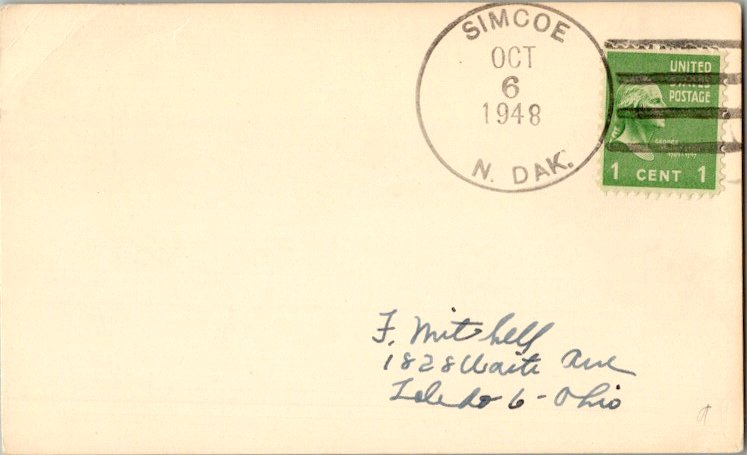 SIMCOE
OCT
6
1948
N. DAK.
UNITED
STATES
POSTAGE
GEORGE
1 CENT 1
F. Mitchell
1828 Waite Ave
Toledo 6 - Ohio